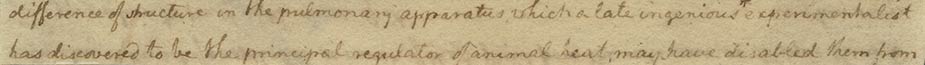 difference of structure in the pulmonary apparatus, which a late ingenious* experimentalist
has discovered to be the principal regulator of animal heat, may have disabled them from